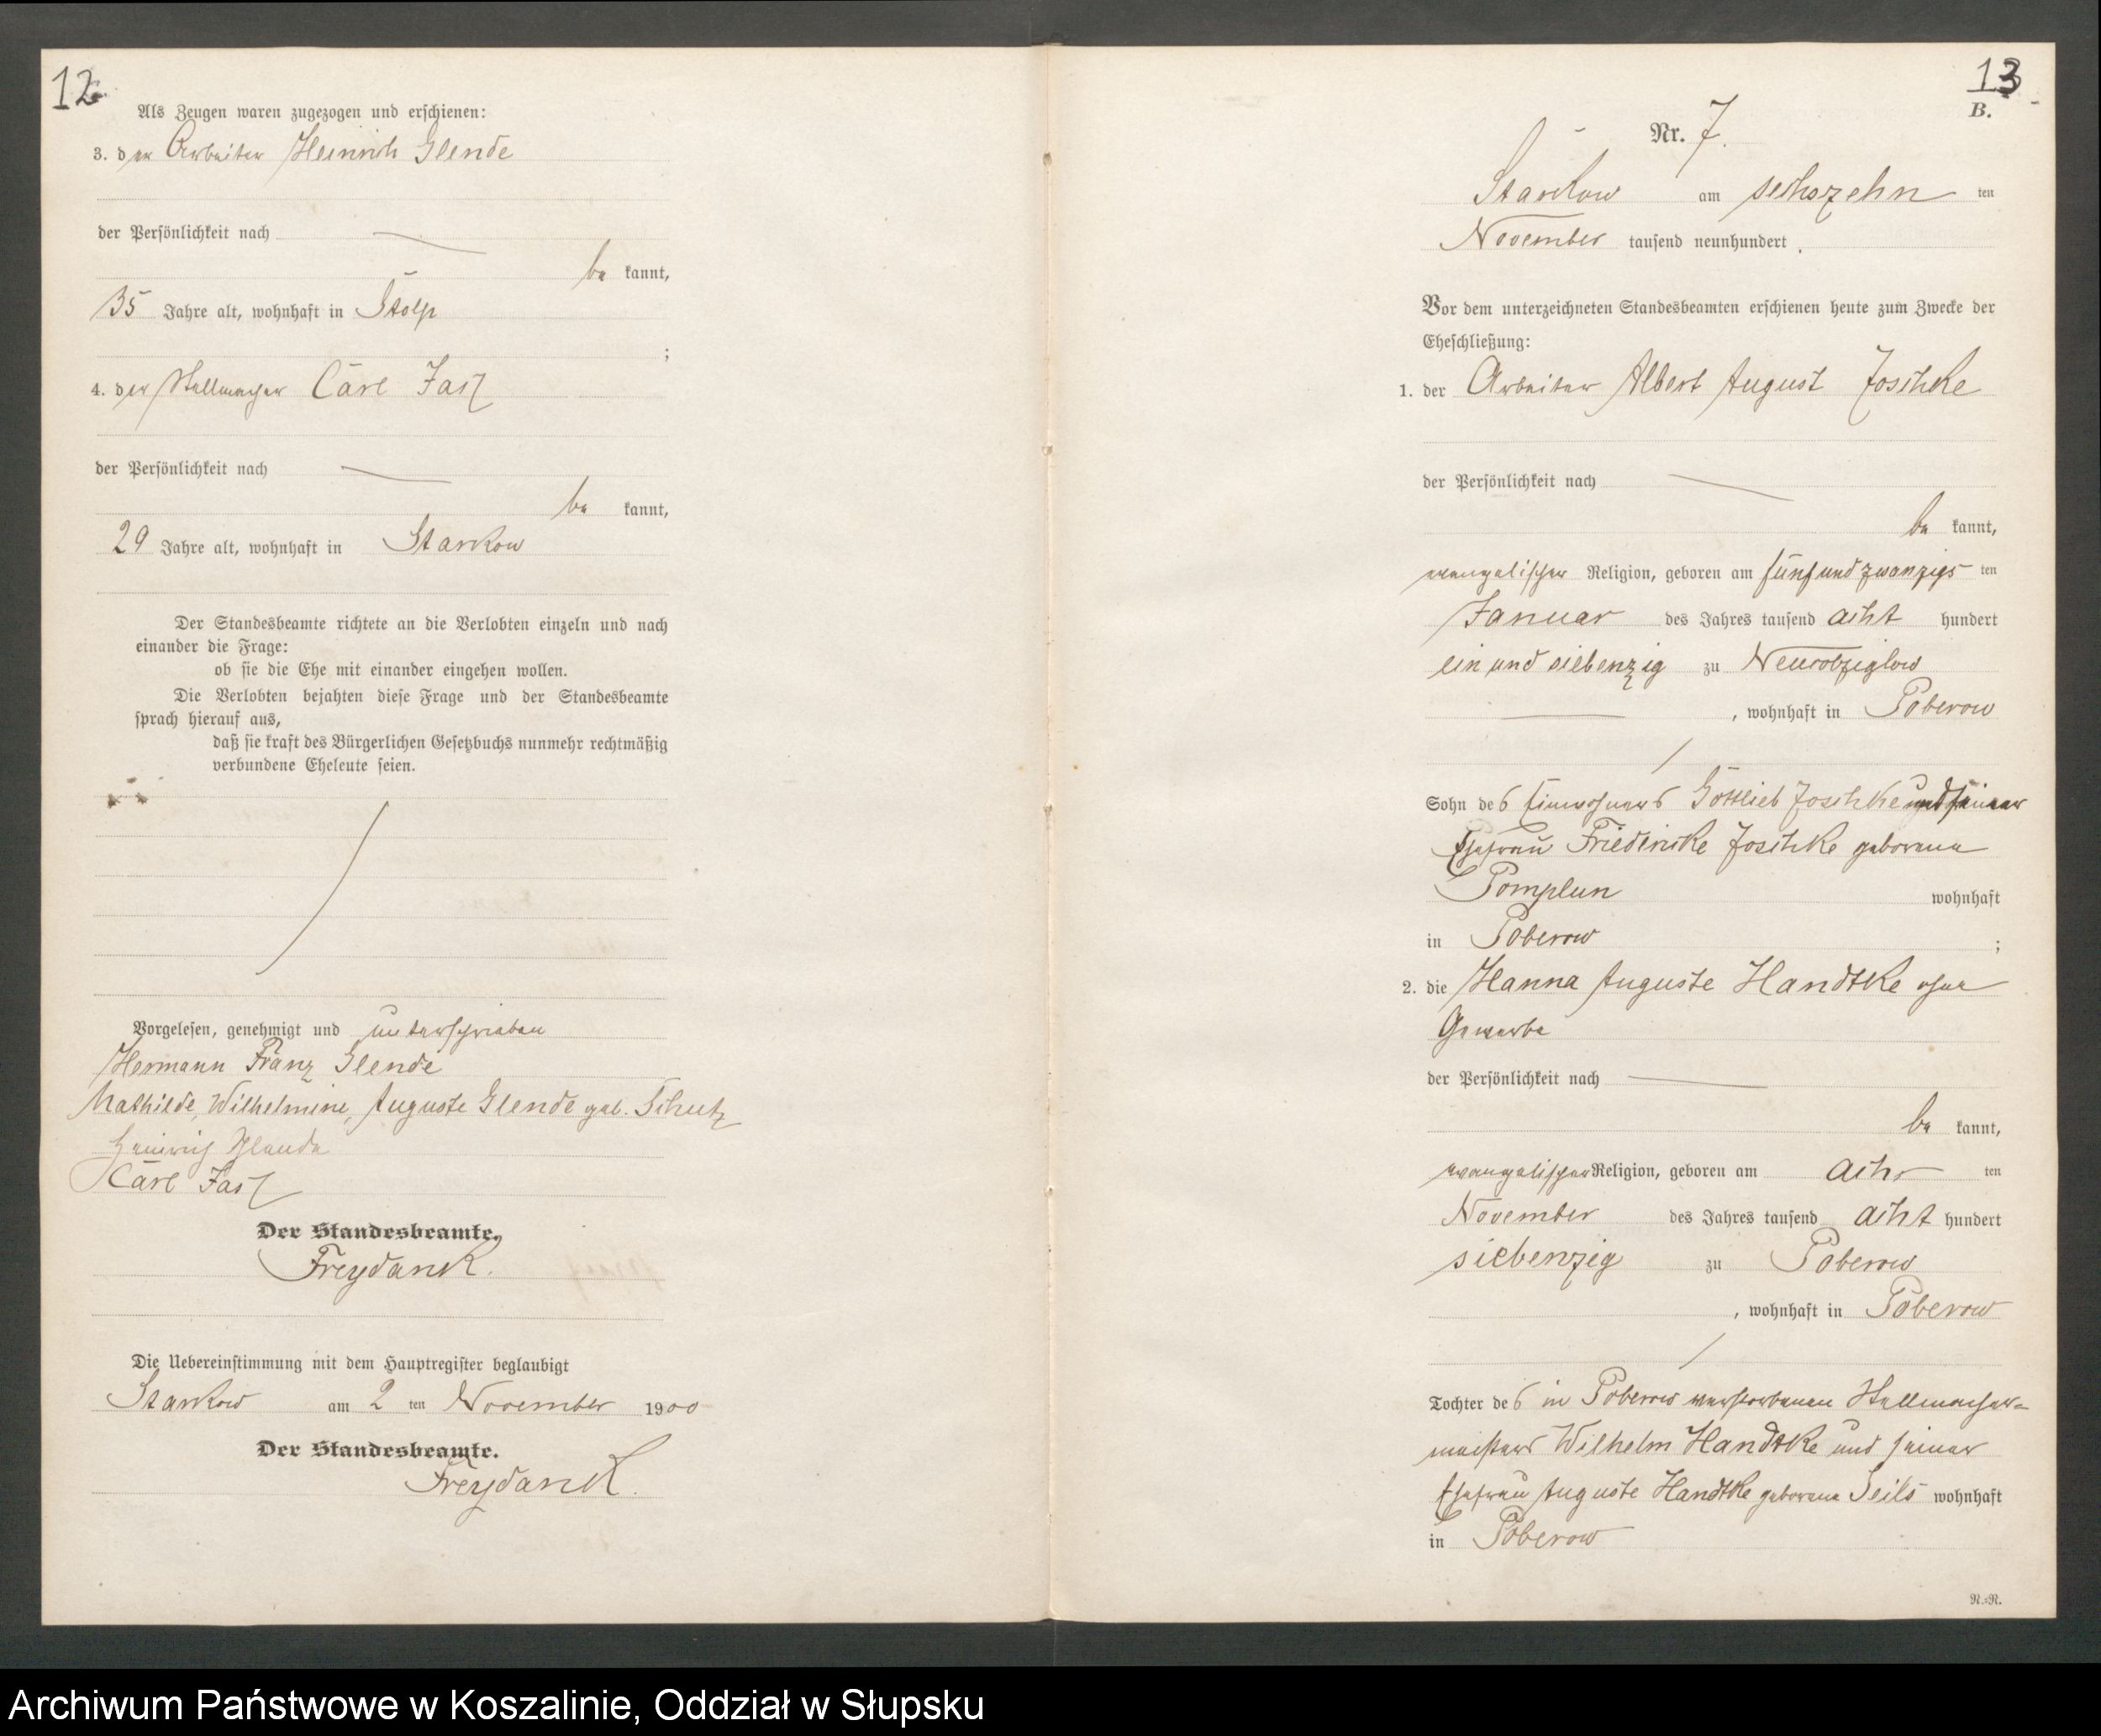 12
Als Zeugen waren zugezogen und erschienen:
3. der Arbeiter Heinrich Glende
der Persönlichkeit nach
be kannt,
35 Jahre alt, wohnhaft in Stolp
;
4. der Stellmacher Carl Fast
der Persönlichkeit nach
be kannt,
29 Jahre alt, wohnhaft in Starkow
Der Standesbeamte richtete an die Verlobten einzeln und nach
einander die Frage:
ob sie die Ehe mit einander eingehen wollen.
Die Verlobten bejahten diese Frage und der Standesbeamte
sprach hierauf aus,
daß sie kraft des Bürgerlichen Gesetzbuchs nunmehr rechtmäßig
verbundene Eheleute seien.
Vorgelesen, genehmigt und unterschrieben
Hermann Franz Glende
Mathilde, Wilhelmine, Auguste Glende geb. Schutz
Heinrich Glende
Carl Fast
Der Standesbeamte.
Freydank.
Die Uebereinstimmung mit dem Hauptregister beglaubigt
Starkow am 2 ten November 1900
Der Standesbeamte.
Freydank.
13
B.
Nr. 7.
Starkow am sechszehn ten
November tausend neunhundert .
Vor dem unterzeichneten Standesbeamten erschienen heute zum Zwecke der
Eheschließung:
1. der Arbeiter Albert August Joschke
der Persönlichkeit nach
be kannt,
evangelischer Religion, geboren am fünfundzwanzigs ten
Januar des Jahres tausend acht hundert
ein und siebenzig zu Neucolziglow
, wohnhaft in Poberow
Sohn des Einwohners Gottlieb Joschke und seiner
Ehefrau Friedericke Joschke geborene
Pomplun wohnhaft
in Poberow ;
2. die Hanna Auguste Handtke ohne
Gewerbe
der Persönlichkeit nach
be kannt,
evangelischer Religion, geboren am acht ten
November des Jahres tausend acht hundert
siebenzig zu Poberow
, wohnhaft in Poberow
Tochter des in Poberow verstorbenen Stellmacher-
meisters Wilhelm Handtke und seiner
Ehefrau Auguste Handtke geborene Seils wohnhaft
in Poberow
N.=N.
Archiwum Państwowe w Koszalinie, Oddział w Słupsku